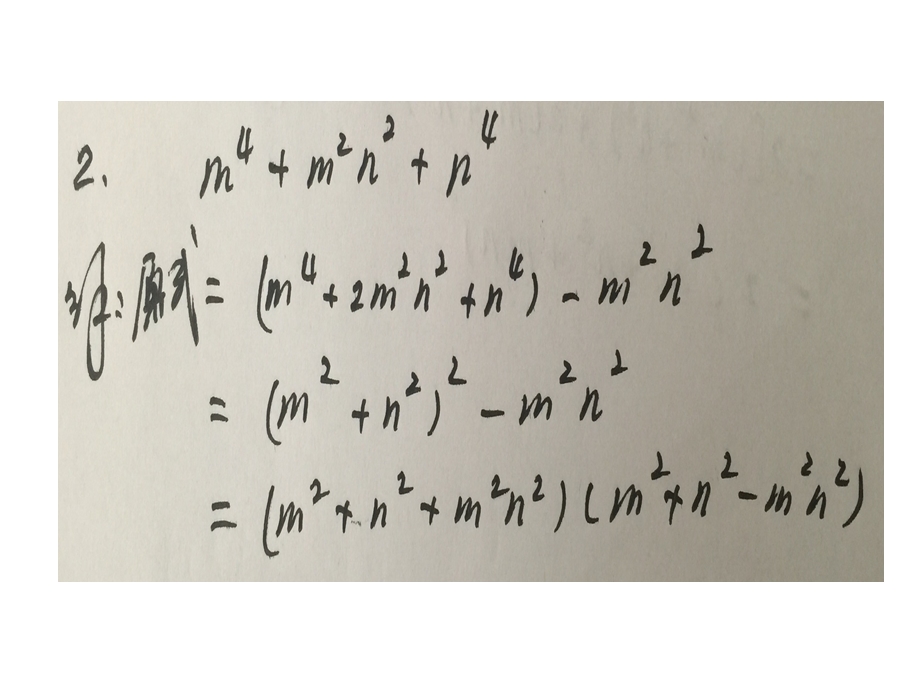 2. m⁴+m²n²+n⁴
解:原式=(m⁴+2m²n²+n⁴)-m²n²
=(m²+n²)²-m²n²
=(m²+n²+m²n²)(m²+n²-m²n²)